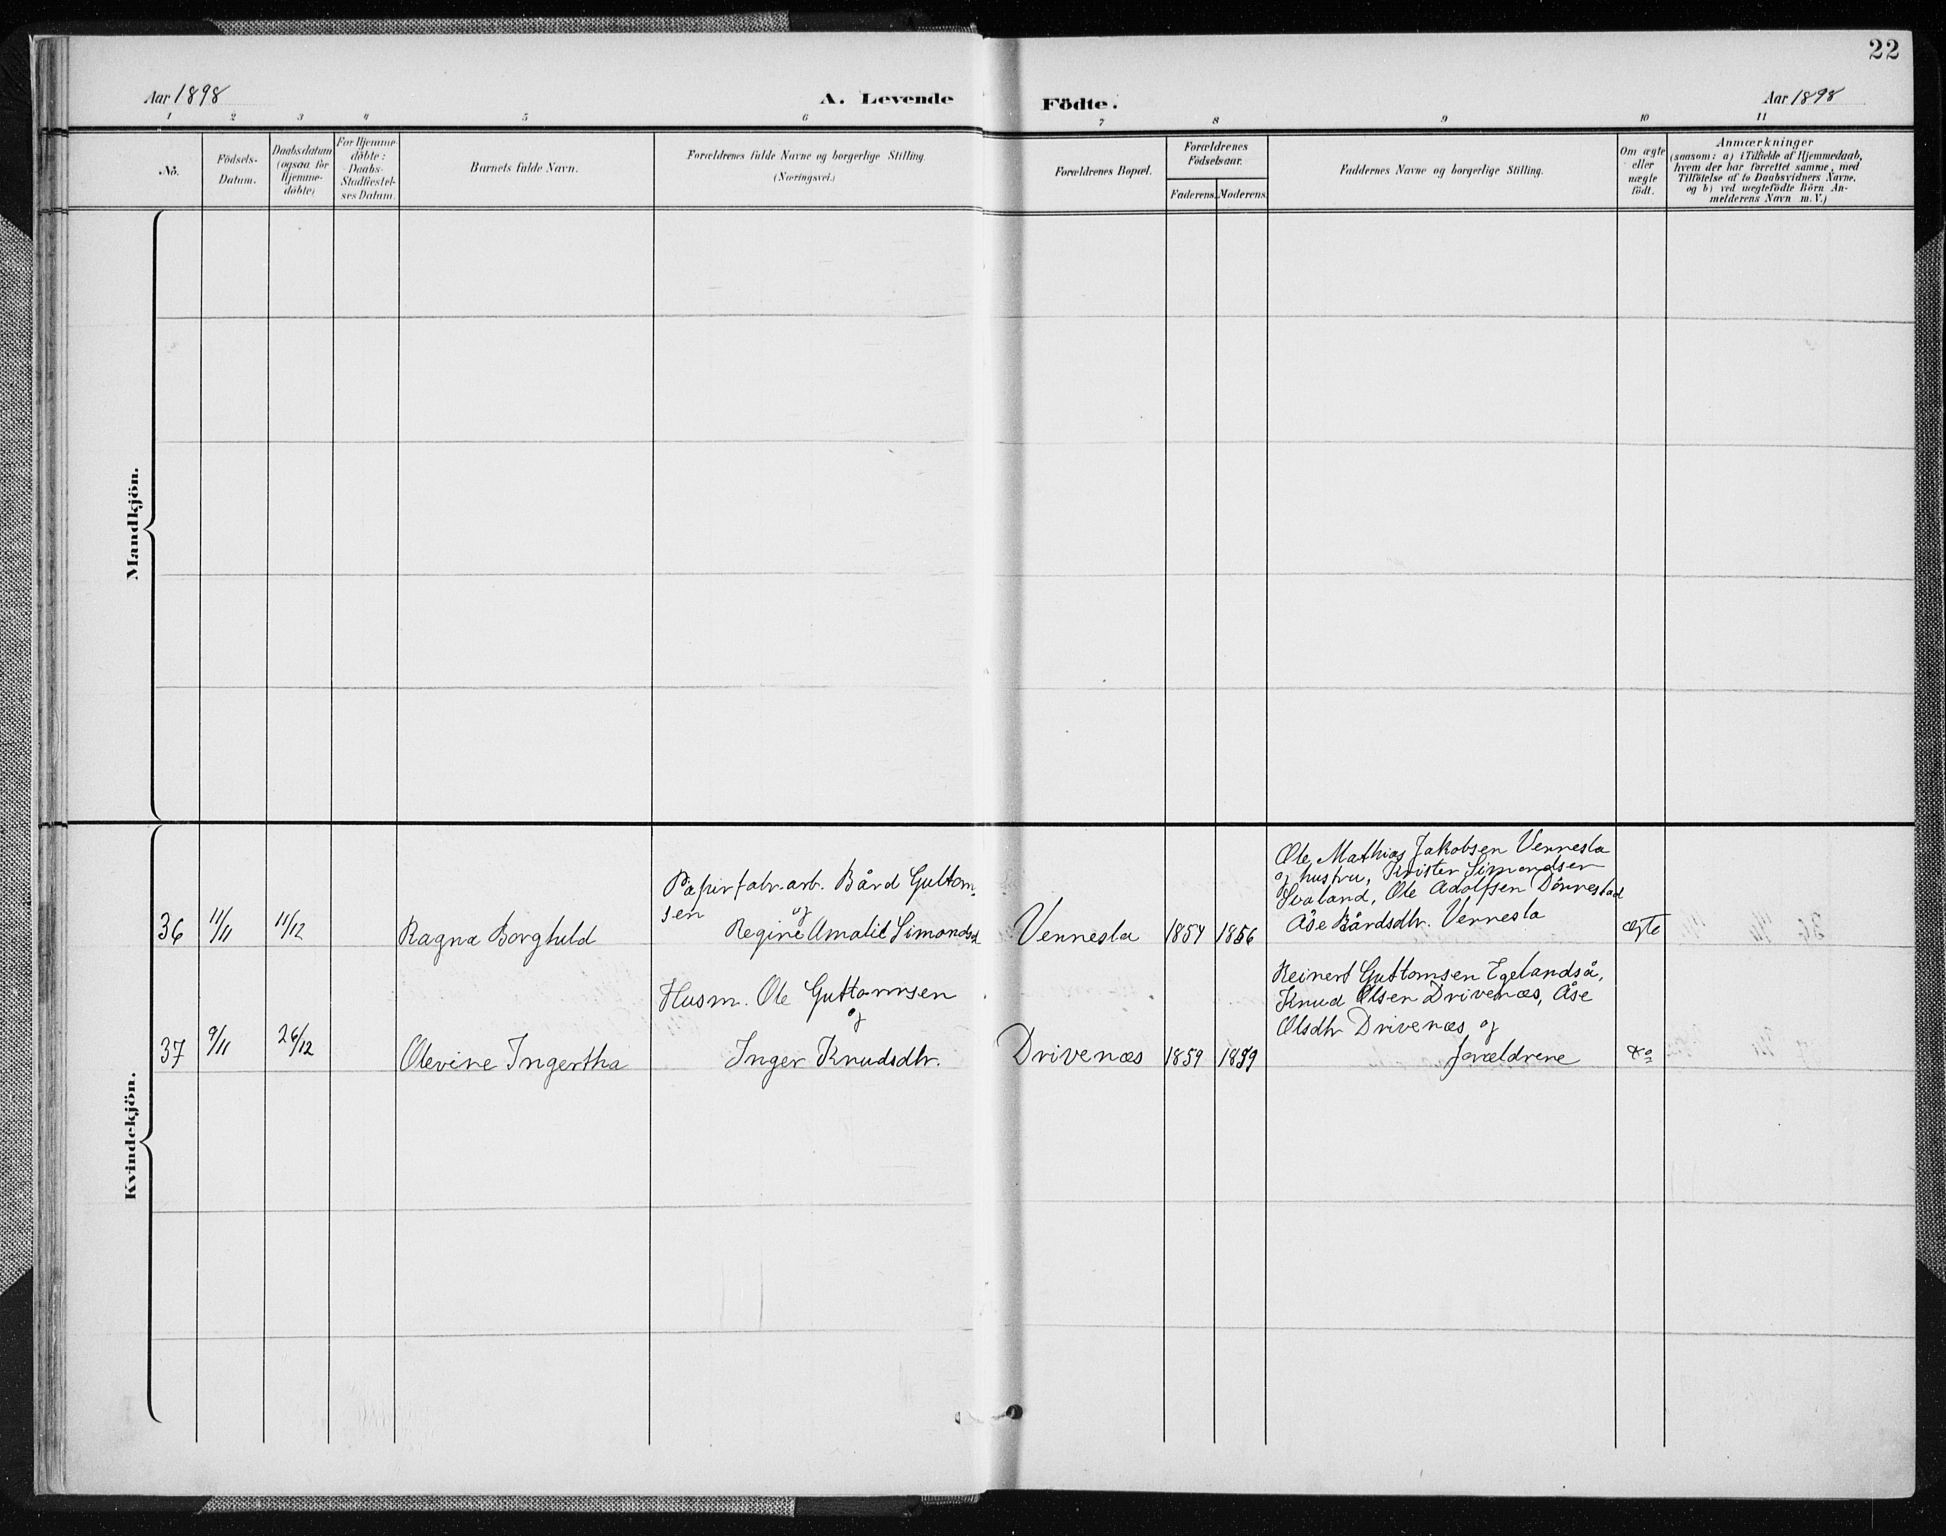 22
Aar 1898
A. Levende
Födte.
Aar 1898
1 2 3 4 5 6 7 8 9 10 11
No.
Födsels-
Datum.
Daabsdatum
(ogsaa for
Hjemme-
döbte)
For Hjemme-
döbte:
Daabs-
Stadfæstel-
ses Datum.
Barnets fulde Navn.
Forældrenes fulde Navne og borgerlige Stilling.
(Næringsvei.)
Forældrenes Bopæl.
Forældrenes
Födselsaar.
Faderens.
Moderens.
Faddernes Navne og borgerlige Stilling.
Om ægte
eller
uægte
födt.
Anmærkninger
(saasom: a) i Tilfælde af Hjemmedaab,
hvem der har forrettet samme, med
Tilföielse af to Daabsvidners Navne,
og b) ved uægtefödte Börn An-
melderens Navn m. V.)
Mandkjön.
Kvindekjön.
36
11/11
11/12
Ragna Borghild
Papirfabr.arb. Bård Guttom-
sen
og
Regine Amalie Simonds
Vennesla
1854
1856
Ole Mathias Jakobsen Vennesla
og hustru, Krister Simondsen
Svaland, Ole Adolfsen Dønnestad
Åse Bårdsdtr. Vennesla
ægte
37
9/11
26/12
Olevine Ingertha
Husm. Ole Guttormsen
og
Inger Knudsdtr.
Drivenæs
1859
1859
Reinert Guttomsen Egelandså,
Knud Olsen Drivenæs, Åse
Olsdtr Drivenæs og
forældrene